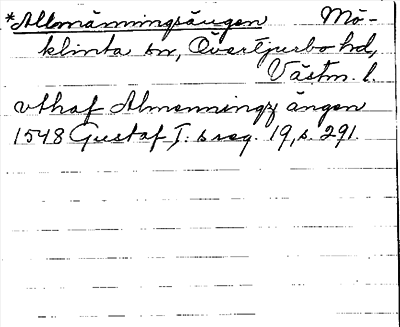 *Allmänningsängen Mö-
klinta sn, Övertjurbo hd,
Västm. l.
vthaf Almenningz ängen
1548 Gustaf I:s reg. 19, s. 291.